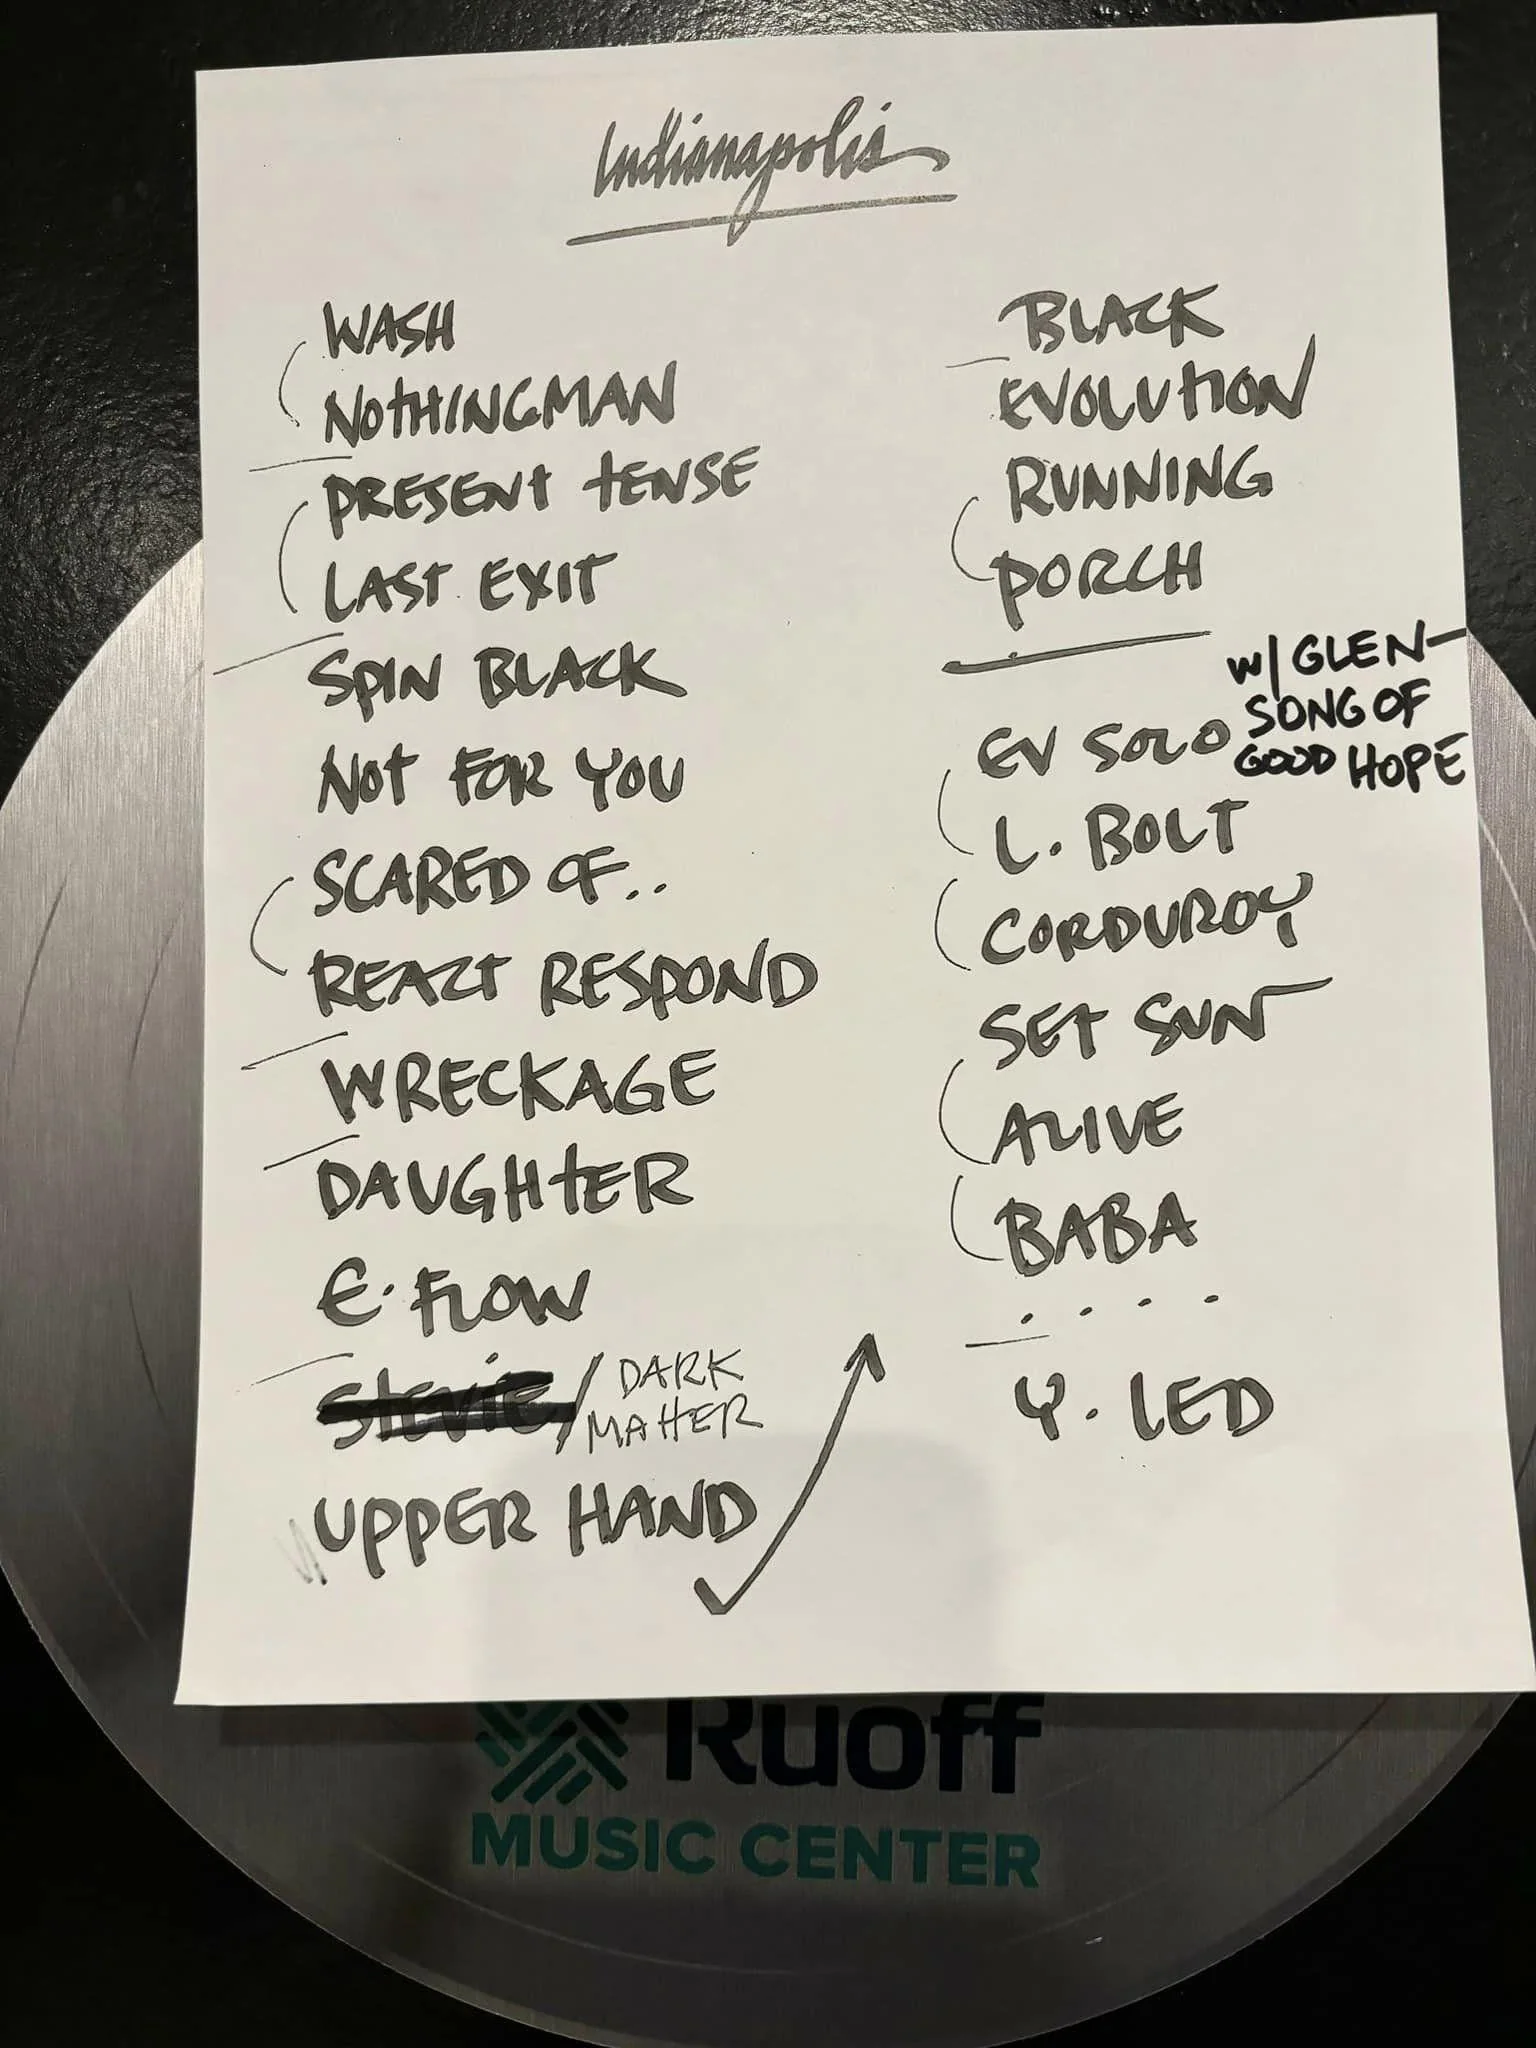 Indianapolis
WASH
NOTHINGMAN
PRESENT TENSE
LAST EXIT
SPIN BLACK
NOT FOR YOU
SCARED OF..
REACT RESPOND
WRECKAGE
DAUGHTER
E. FLOW
STEVIE / DARK
MATTER
UPPER HAND
BLACK
EVOLUTION
RUNNING
PORCH
W/ GLEN-
SONG OF
GOOD HOPE
EV SOLO
L. BOLT
CORDUROY
SET SUN
ALIVE
BABA
. . . .
Y. LED
Ruoff
MUSIC CENTER